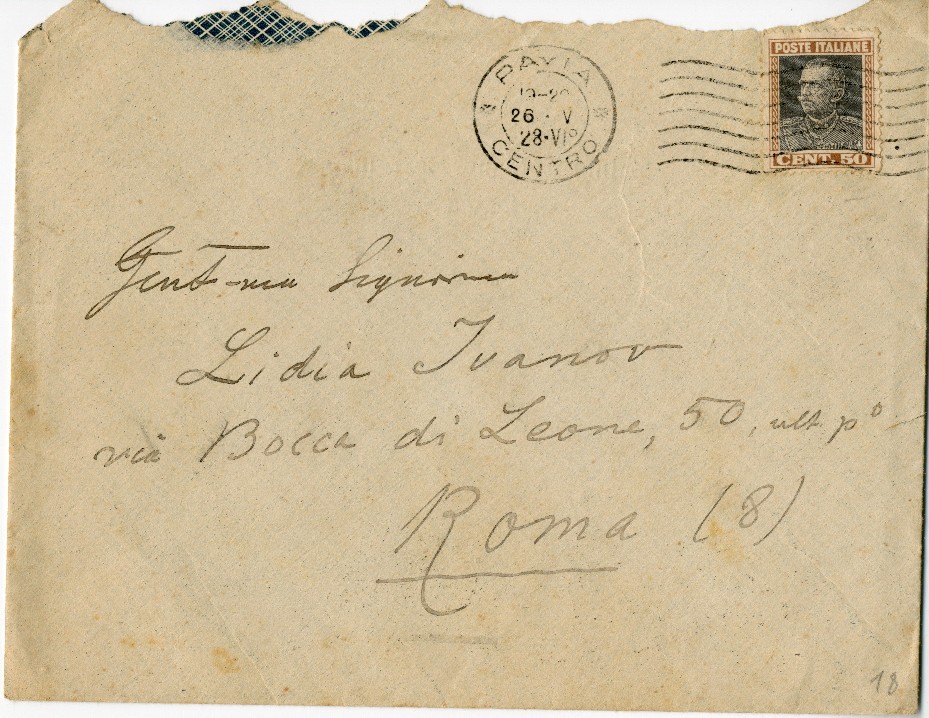 PAVIA
19-20
26 · V
28·VIº
CENTRO
POSTE ITALIANE
CENT. 50
Gent-ma Signorina
Lidia Ivanov
via Bocca di Leone, 50, ult. pº
Roma (8)
18